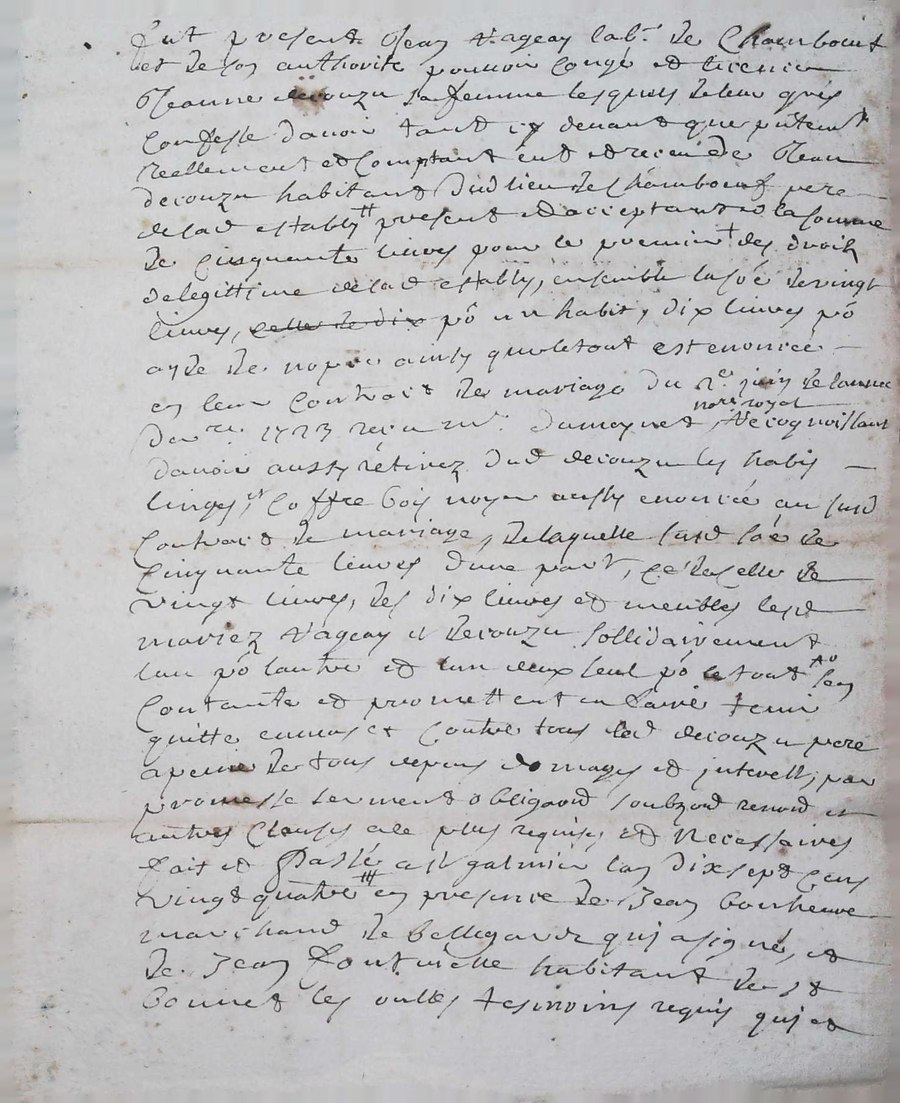 fut present Jean Vageay lab.r de Chamboeuf
et de son authorité pouvoir congé et licence
Jeanne decouzu sa femme lesquels de leur grés
Confesse davoir tant cy devant que pntem.t
reellement et Comptant eut et receu de Jean
decouzu habitant dud lieu de Chamboeuf pere
de lad establye present et acceptant la somme
de Cinquante livres pour le premier des droits
de legittime de lad establye, ensemble la soe de vingt
livres, celle de dix po un habit, dix livres po
ayde de nopce ainsy que le tout est enoncé
en leur Contract de mariage du juin de lannee
der.re 1723 receu m.e Dumoynet nore royal, Recognoissant
davoir aussy retirez dud decouzu les habis
linges, et Coffre bois noyer aussy enoncé au susd
Contract de mariage, de laquelle susd soe de
Cinquante livres dune part, celle de
vingt livres, des dix livres et meubles lesd
mariez Vageay et decouzu sollidairement
lun po lautre et un deux seul po le tout sen
Contante et promettent en faire tenir
quitte envers et Contre tous led decouzu pere
a peine de tous depens domages et interests, par
promesse serment obligaond soubzond renond et
autres Clauses a le plus requises et Necessaires
fait et Passé a st galmier lan dix sept Cens
vingt quatre en presence de Jean bonheure
marchand de bellegarde qui a signé, et
de Jean fontvielle habitant de st
bonnet les oulles tesmoins requis qui et